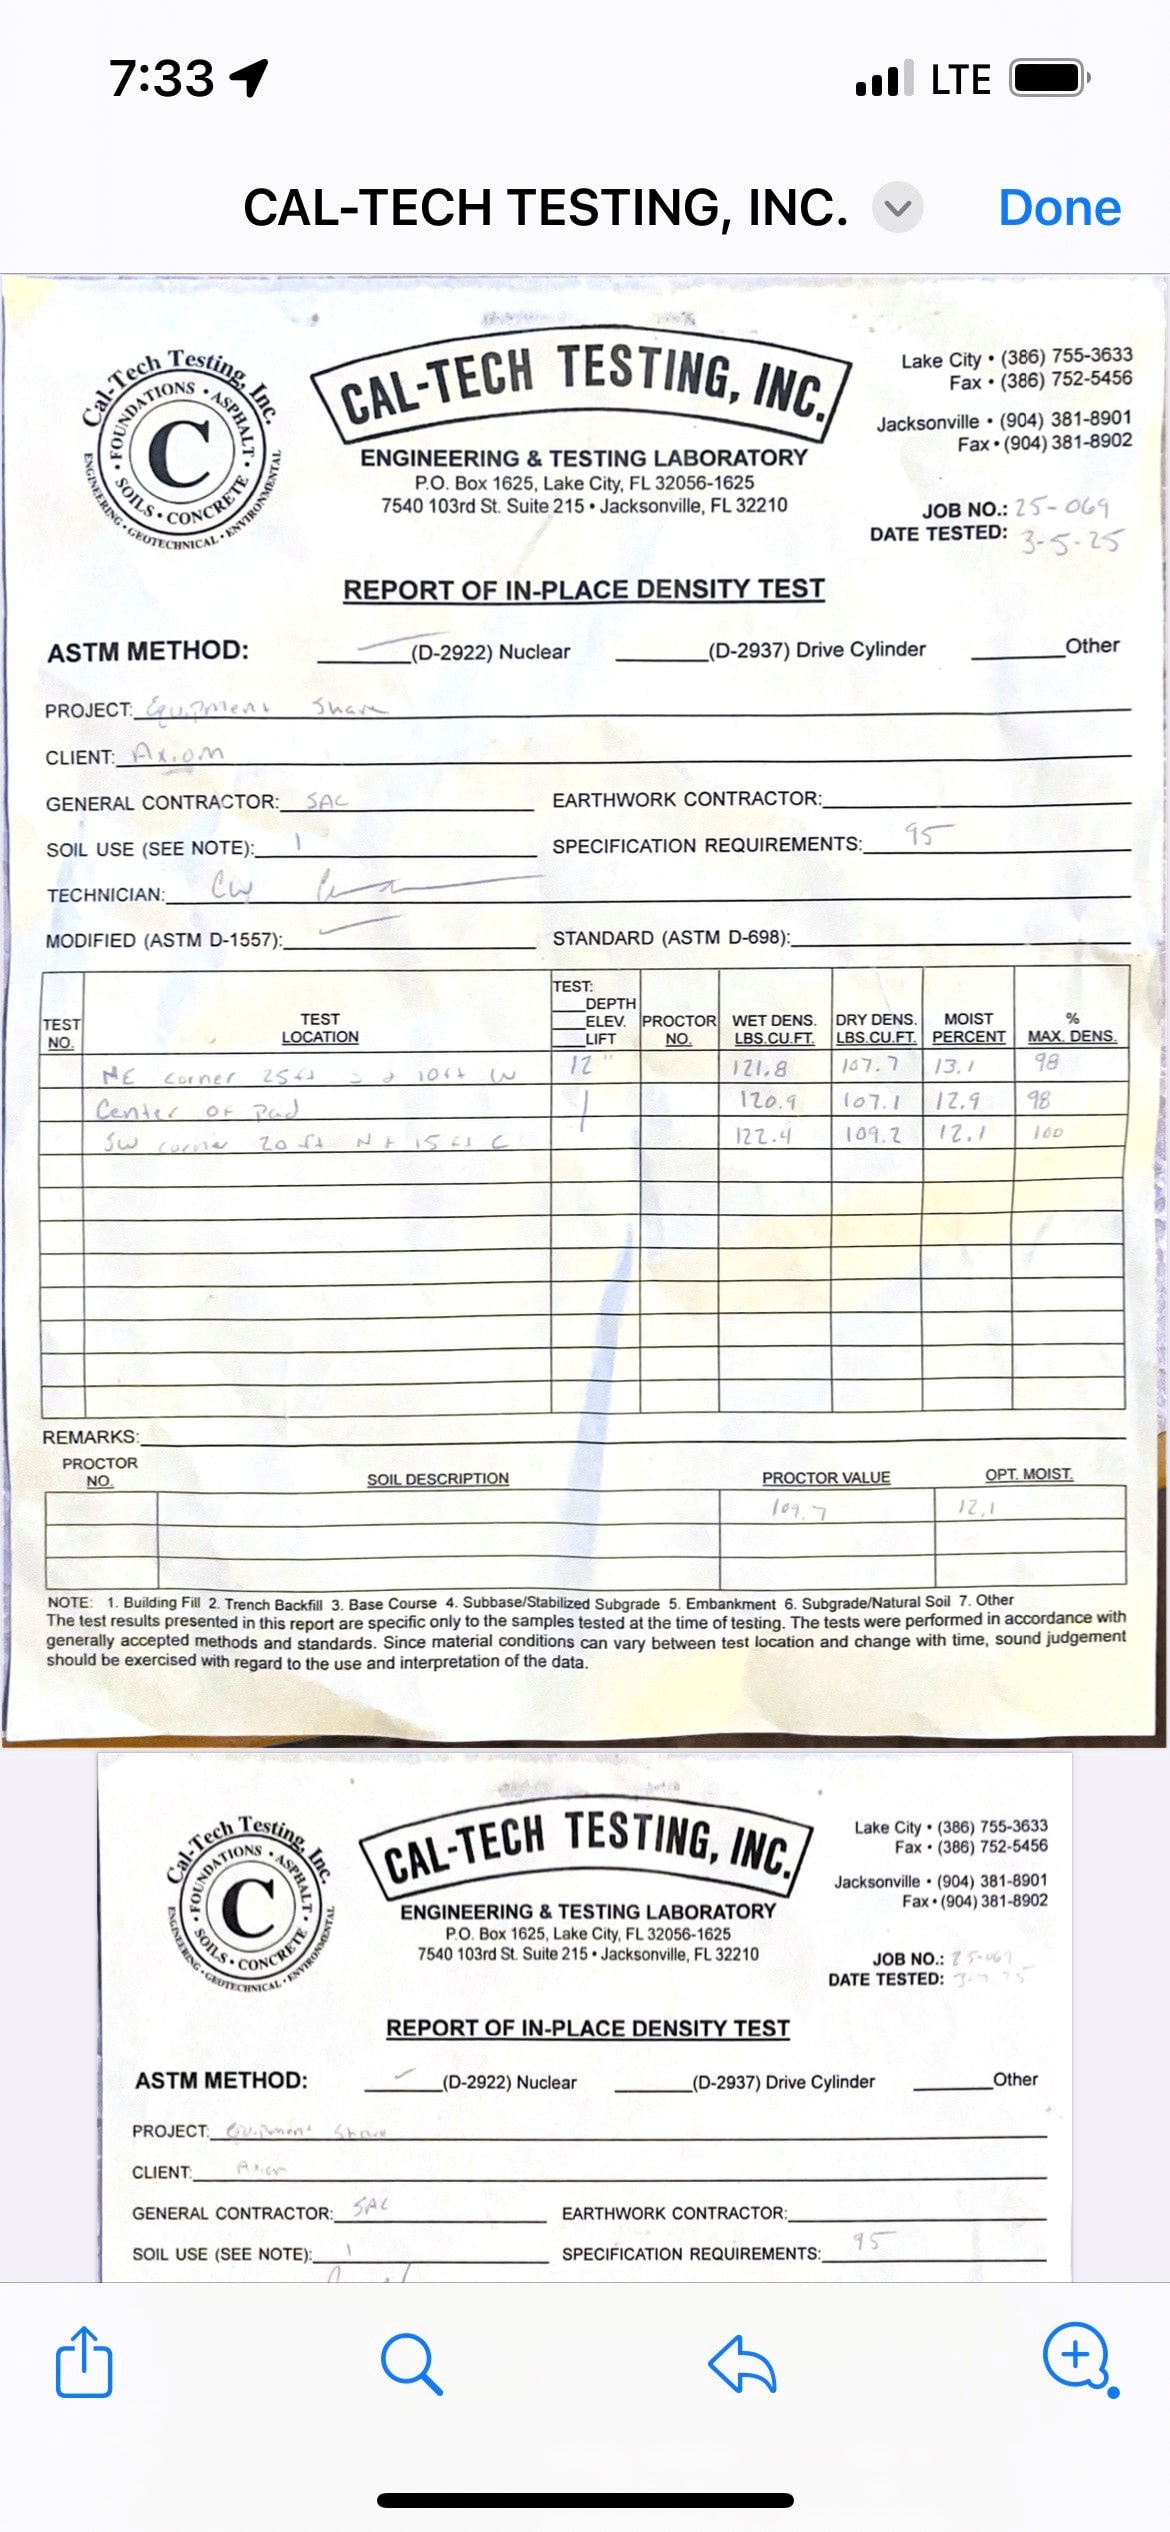 7:33 LTE
CAL-TECH TESTING, INC. Done
Cal-Tech Testing, Inc.
FOUNDATIONS • ASPHALT • SOILS • CONCRETE
ENGINEERING • GEOTECHNICAL • ENVIRONMENTAL
C
CAL-TECH TESTING, INC.
ENGINEERING & TESTING LABORATORY
P.O. Box 1625, Lake City, FL 32056-1625
7540 103rd St. Suite 215 • Jacksonville, FL 32210
Lake City • (386) 755-3633
Fax • (386) 752-5456
Jacksonville • (904) 381-8901
Fax • (904) 381-8902
JOB NO.: 25-069
DATE TESTED: 3-5-25
REPORT OF IN-PLACE DENSITY TEST
ASTM METHOD: (D-2922) Nuclear (D-2937) Drive Cylinder Other
PROJECT: Equipment Share
CLIENT: Axiom
GENERAL CONTRACTOR: SAC EARTHWORK CONTRACTOR:
SOIL USE (SEE NOTE): 1 SPECIFICATION REQUIREMENTS: 95
TECHNICIAN: CW
MODIFIED (ASTM D-1557): STANDARD (ASTM D-698):
TEST NO. TEST LOCATION TEST: DEPTH ELEV. LIFT PROCTOR NO. WET DENS. LBS.CU.FT. DRY DENS. LBS.CU.FT. MOIST PERCENT % MAX. DENS.
NE corner 25ft 10ft W 12" 121.8 107.7 13.1 98
Center of Pad 120.9 107.1 12.9 98
SW corner 20 ft N + 15 ft E 122.4 109.2 12.1 100
REMARKS:
PROCTOR NO. SOIL DESCRIPTION PROCTOR VALUE OPT. MOIST.
109.7 12.1
NOTE: 1. Building Fill 2. Trench Backfill 3. Base Course 4. Subbase/Stabilized Subgrade 5. Embankment 6. Subgrade/Natural Soil 7. Other
The test results presented in this report are specific only to the samples tested at the time of testing. The tests were performed in accordance with
generally accepted methods and standards. Since material conditions can vary between test location and change with time, sound judgement
should be exercised with regard to the use and interpretation of the data.
Cal-Tech Testing, Inc.
FOUNDATIONS • ASPHALT • SOILS • CONCRETE
ENGINEERING • GEOTECHNICAL • ENVIRONMENTAL
C
CAL-TECH TESTING, INC.
ENGINEERING & TESTING LABORATORY
P.O. Box 1625, Lake City, FL 32056-1625
7540 103rd St. Suite 215 • Jacksonville, FL 32210
Lake City • (386) 755-3633
Fax • (386) 752-5456
Jacksonville • (904) 381-8901
Fax • (904) 381-8902
JOB NO.:
DATE TESTED:
REPORT OF IN-PLACE DENSITY TEST
ASTM METHOD: (D-2922) Nuclear (D-2937) Drive Cylinder Other
PROJECT: Equipment Share
CLIENT: Axiom
GENERAL CONTRACTOR: SAC EARTHWORK CONTRACTOR:
SOIL USE (SEE NOTE): 1 SPECIFICATION REQUIREMENTS: 95